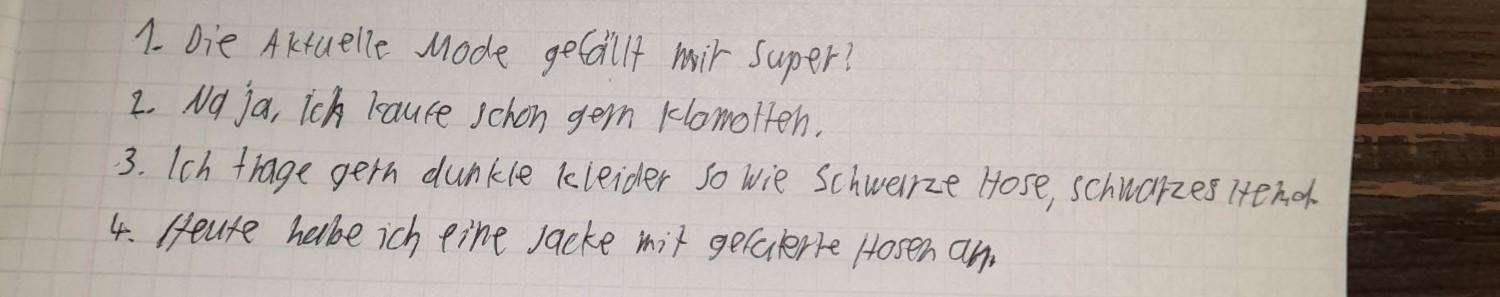 1. Die Aktuelle Mode gefällt mir super!
2. Na ja, ich kaufe schon gern Klamotten.
3. Ich trage gern dunkle kleider so wie Schwarze Hose, schwarzes Hemd.
4. Heute habe ich eine Jacke mit Hosen an.